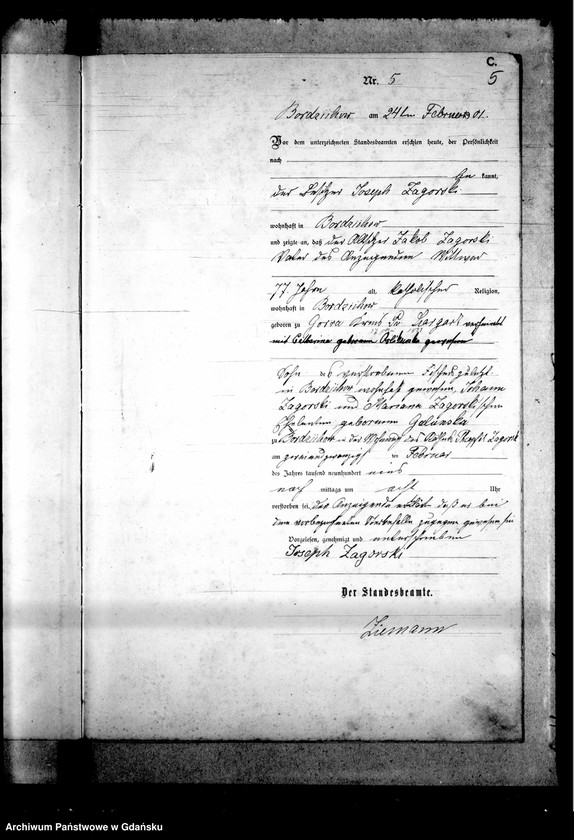 C.
Nr. 5 5
Bordzichow am 24ten Februar 01.
Vor dem unterzeichneten Standesbeamten erschien heute, der Persönlichkeit
nach
be kannt,
der Besitzer Joseph Zagorski
wohnhaft in Bordzichow
und zeigte an, daß der Altsitzer Jakob Zagorski
Vater des Anzeigenden Wittwer
77 Jahre alt, katholischer Religion,
wohnhaft in Bordzichow
geboren zu Gorra Kreis Pr Stargart verheirathet
mit Catharina geborene gewesen
Sohn des verstorbenen zuletzt
in Bordzichow wohnhaft gewesenen Johann
Zagorski und Mariana Zagorskischen
Eheleuten geborenen Golunska
zu Bordzichow in der Wohnung des Joseph Zagorski
am zweiundzwanzigsten Februar
des Jahres tausend neunhundert eins
nach mittags um acht Uhr
verstorben sei, der Anzeigende erklärt daß er bei
dem vorbezeichneten Sterbefalle zugegen gewesen sei
Vorgelesen, genehmigt und unterschrieben
Joseph Zagorski
Der Standesbeamte.
Ziemann
Archiwum Państwowe w Gdańsku